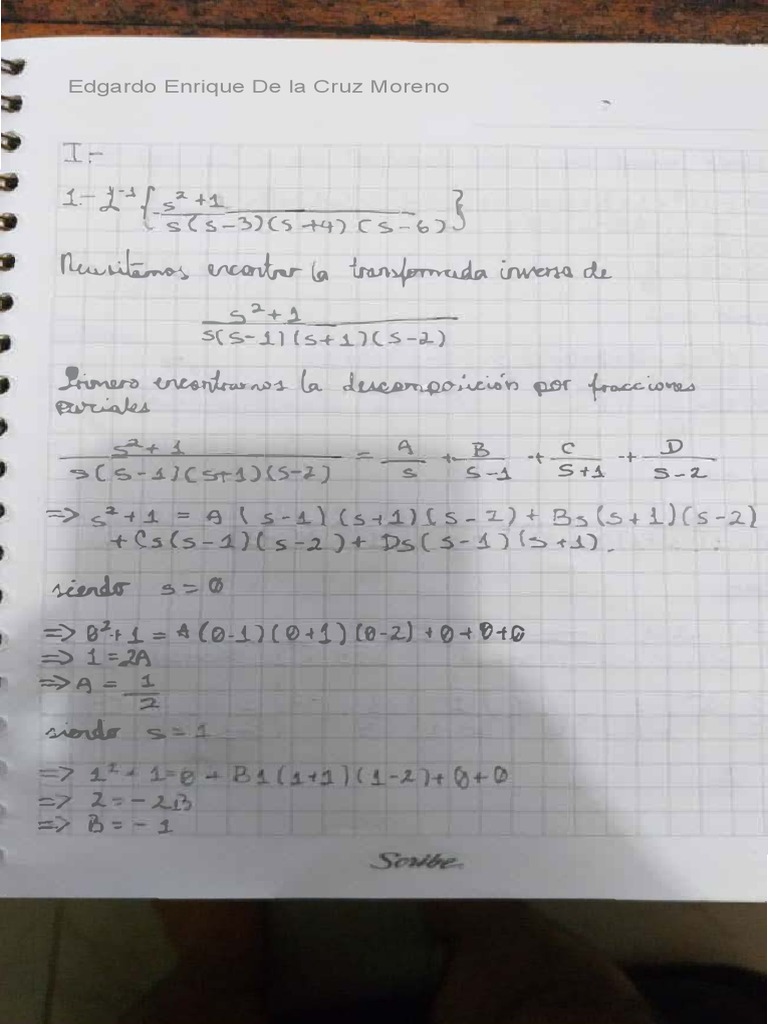 Edgardo Enrique De la Cruz Moreno
I.-
1.- ℒ⁻¹ { s² + 1 / s(s-3)(s+4)(s-6) }
Necesitamos encontrar la transformada inversa de
s² + 1 / s(s-1)(s+1)(s-2)
Primero encontramos la descomposición por fracciones
parciales
s² + 1 / s(s-1)(s+1)(s-2) = A/s + B/s-1 + C/s+1 + D/s-2
=> s² + 1 = A(s-1)(s+1)(s-2) + Bs(s+1)(s-2)
+ Cs(s-1)(s-2) + Ds(s-1)(s+1).
siendo s = 0
=> 0² + 1 = A(0-1)(0+1)(0-2) + 0 + 0 + 0
=> 1 = 2A
=> A = 1/2
siendo s = 1
=> 1² + 1 = 0 + B1(1+1)(1-2) + 0 + 0
=> 2 = -2B
=> B = -1
Scribe